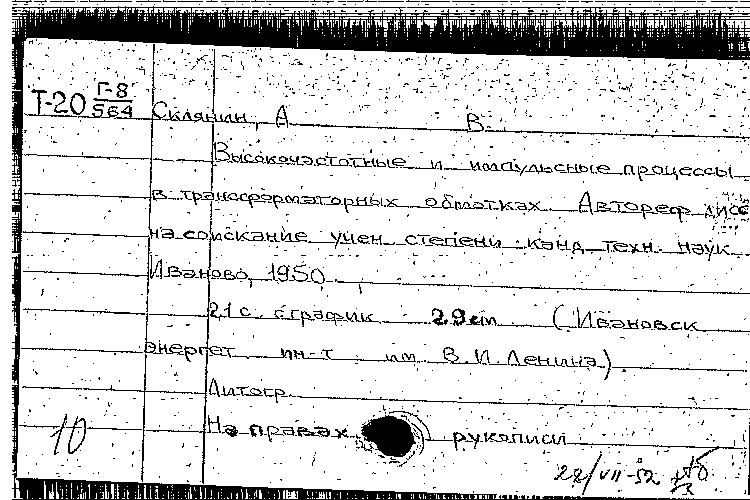 Т-20 Г-8/564 Склянин, А В.
Высокочастотные и импульсные процессы
в трансформаторных обмотках. Автореф дисс
на соискание учен степени канд техн. наук
Иваново, 1950.
21 с. с график 29 см (Ивановск
энергет ин-т им В.И. Ленина).
Литогр.
На правах рукописи
10
22/VII-52